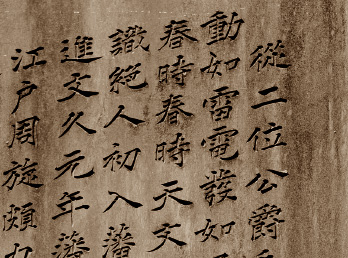 從二位公爵
動如雷電發如
春時春時天文
識絶人初入藩
進文久元年藩
江戸周旋頗力